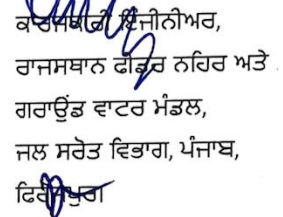 ਕਾਰਜਕਾਰੀ ਇੰਜੀਨੀਅਰ,
ਰਾਜਸਥਾਨ ਫੀਡਰ ਨਹਿਰ ਅਤੇ
ਗਰਾਊਂਡ ਵਾਟਰ ਮੰਡਲ,
ਜਲ ਸਰੋਤ ਵਿਭਾਗ, ਪੰਜਾਬ,
ਫਿਰੋਜ਼ਪੁਰ।